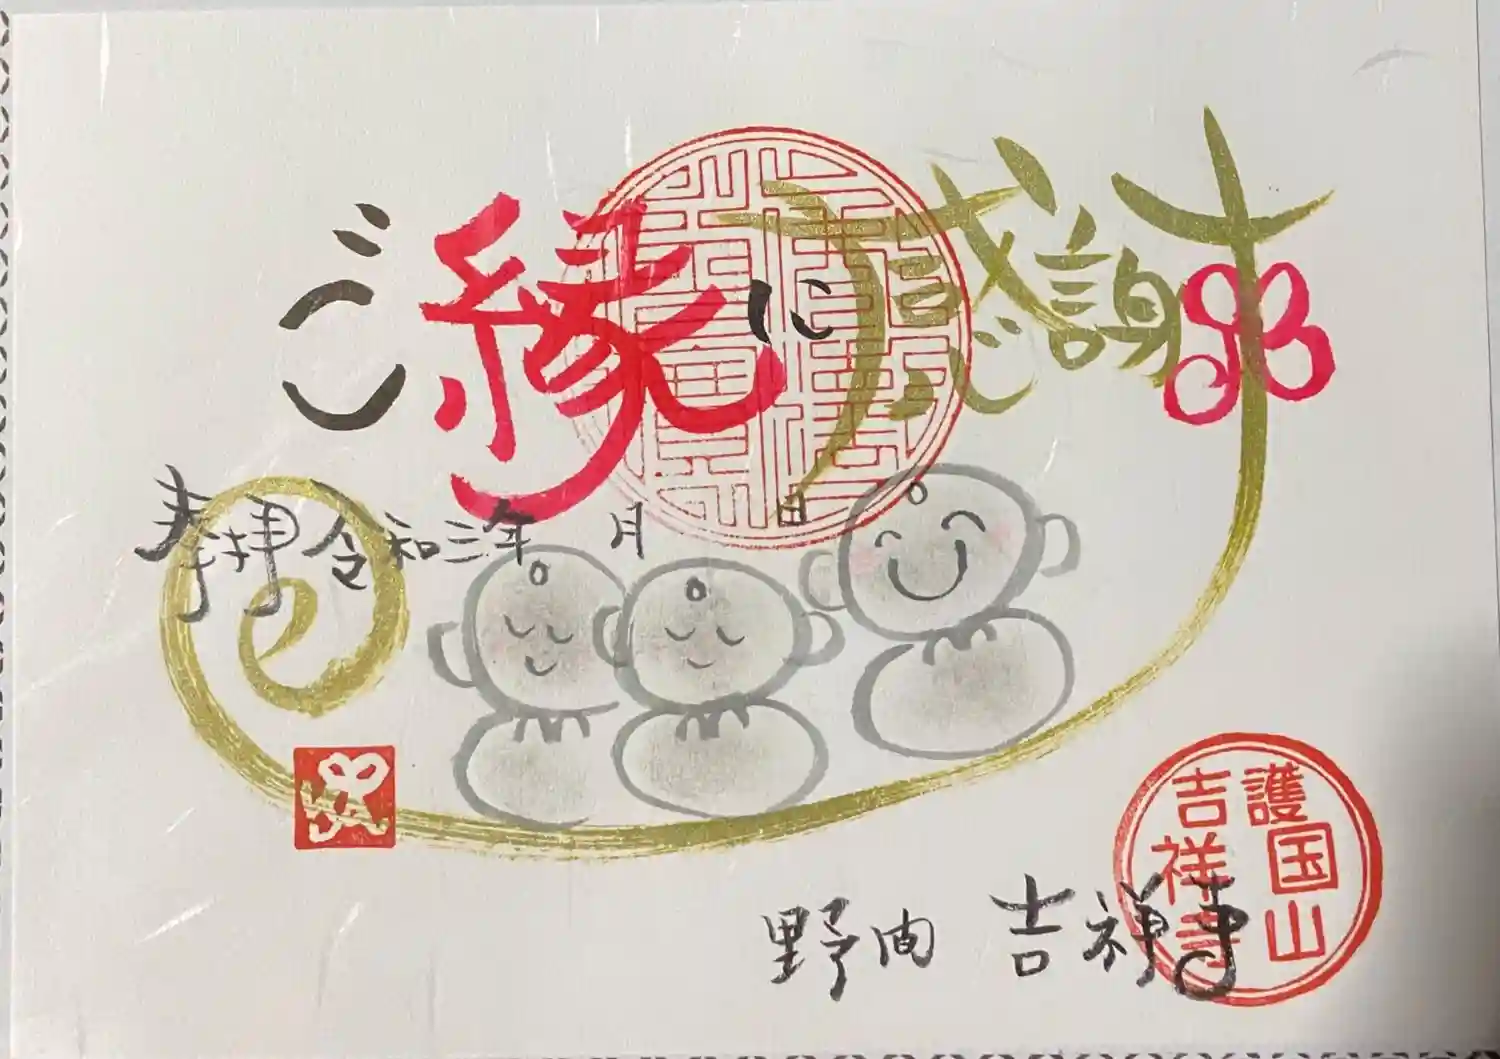 ご縁に感謝
奉拝 令和三年 月 日
護国山
吉祥寺
野間 吉祥寺